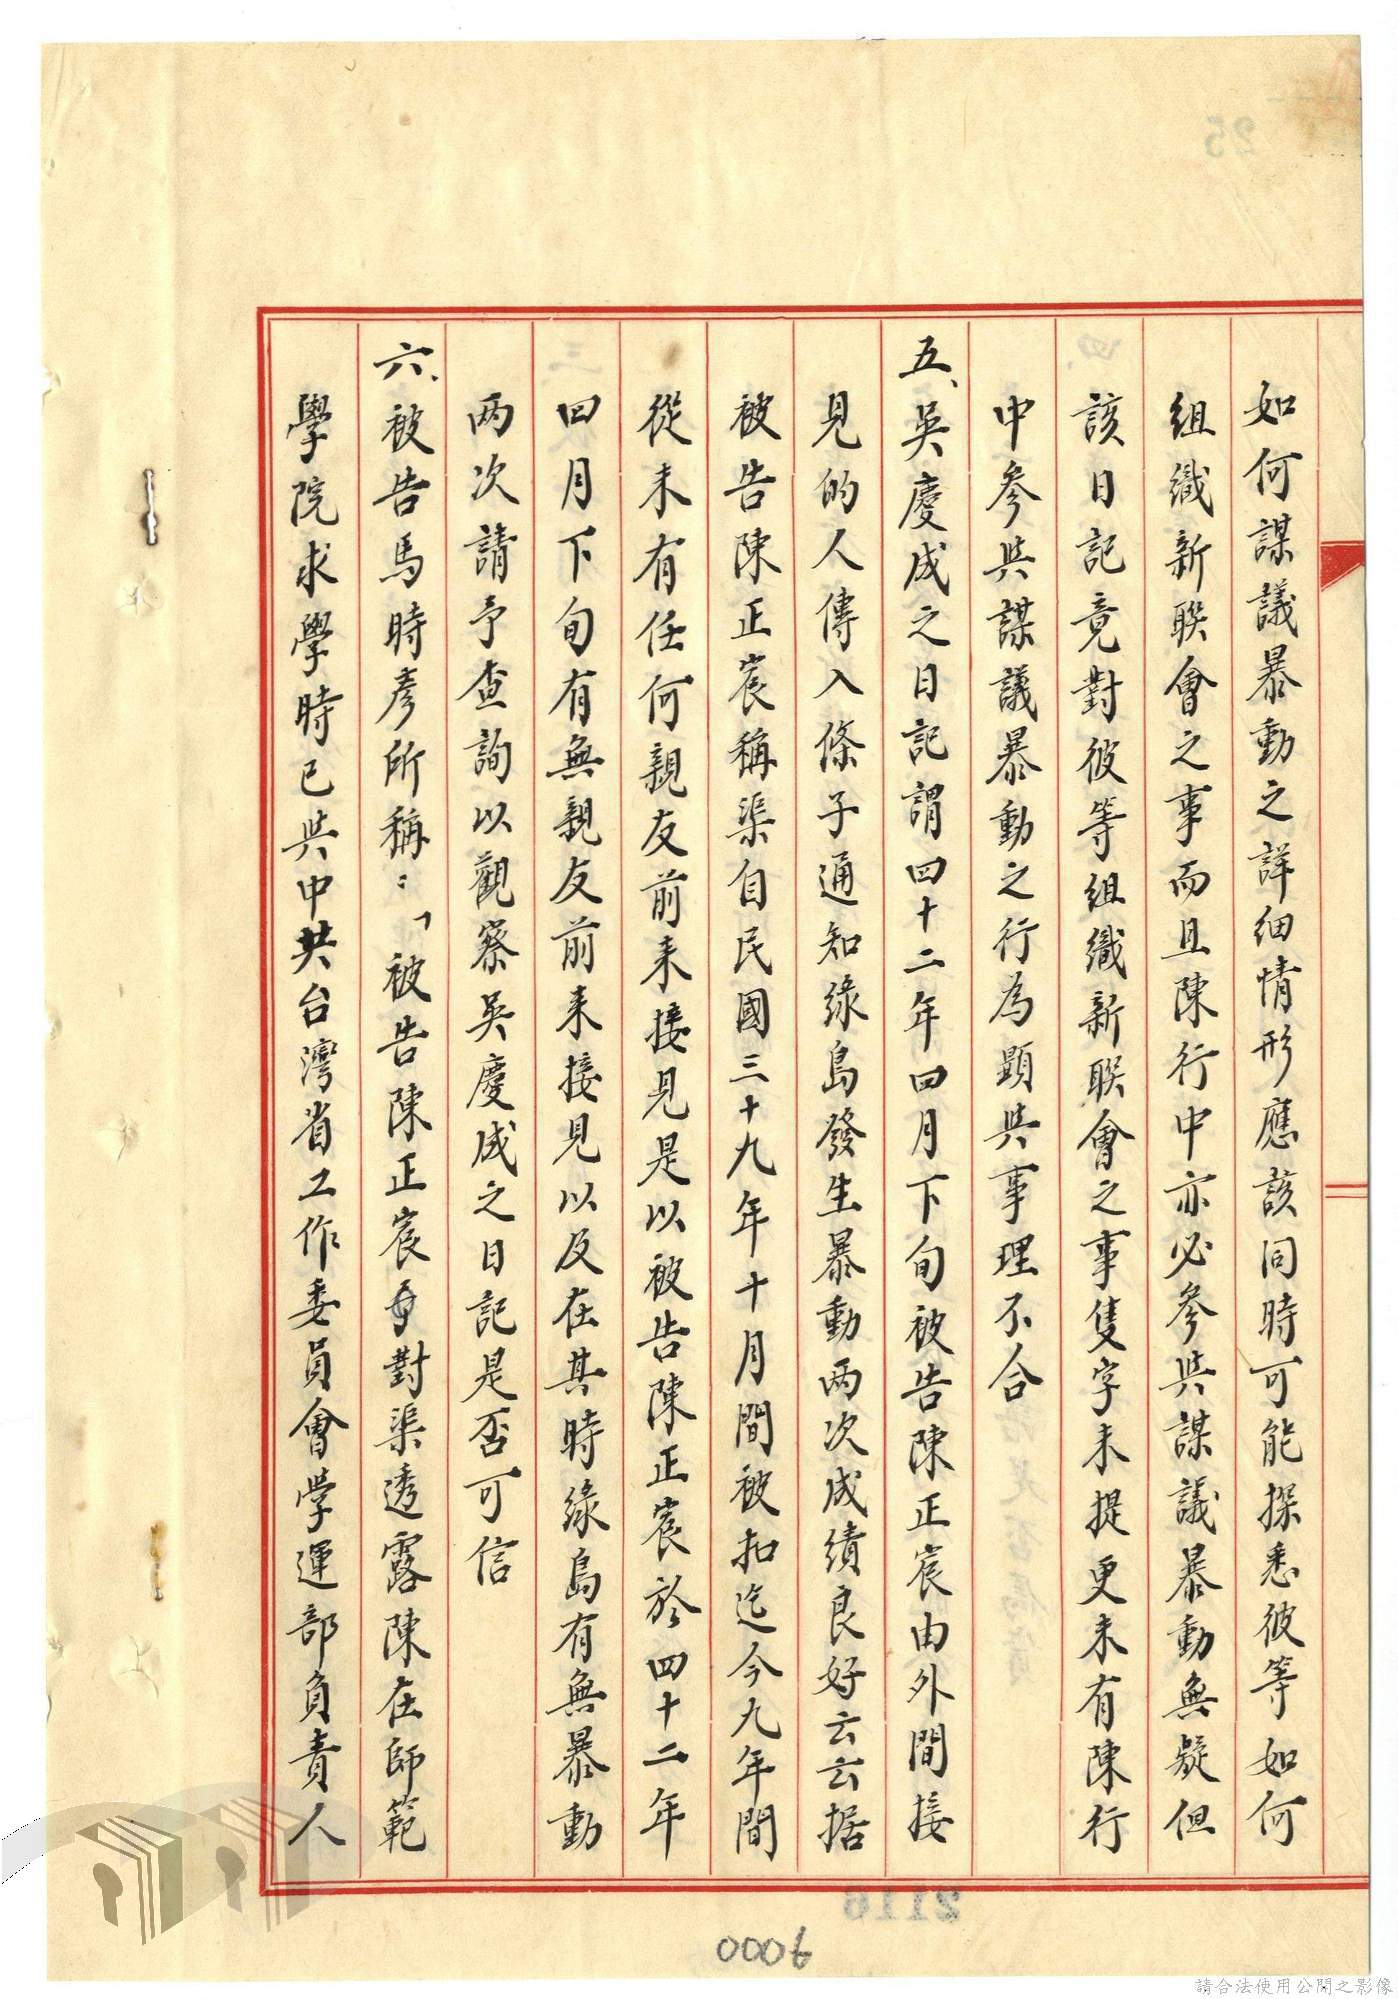 如何謀議暴動之詳細情形應該同時可能探悉彼等如何
組織新聯會之事而且陳行中亦必參與謀議暴動無疑但
該日記竟對彼等組織新聯會之事隻字未提更未有陳行
中參與謀議暴動之行為顯與事理不合
五、吳慶成之日記謂四十二年四月下旬被告陳正宸由外間接
見的人傳入條子通知綠島發生暴動兩次成績良好云云据
被告陳正宸稱渠自民國三十九年十月間被扣迄今九年間
從未有任何親友前來接見是以被告陳正宸於四十二年
四月下旬有無親友前來接見以及在其時綠島有無暴動
兩次請予查詢以觀察吳慶成之日記是否可信
六、被告馬時彥所稱：「被告陳正宸對渠透露陳在師範
學院求學時已與中共台灣省工作委員會學運部負責人
2116
0006
25
請合法使用公開之影像